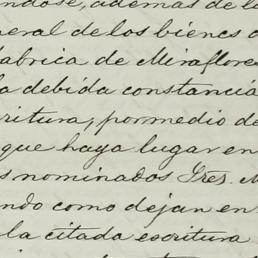 ndose, ademas de l
neral de los bienes 
fabrica de Miraflores
la debida constancia
ritura, por medio de
que haya lugar en
s nominados Sres. M
ndo como dejan en
la citada escritura